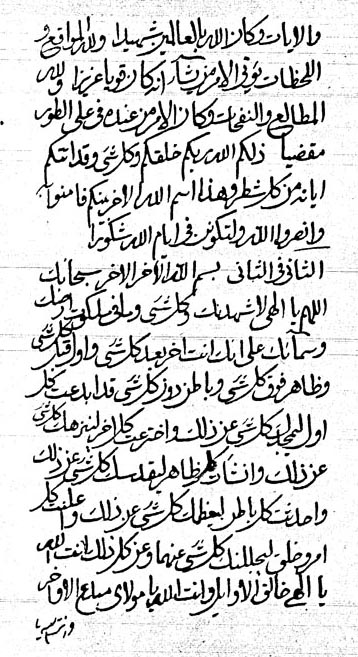 والايات وكان الله بالعالمين شهيدا ولله المواقع و
اللحظات يؤتي الامر من يشآء انه كان قويا عزيزا ولله
المطالع والنفحات وكان الامر من عنده في على الطور
مقضيا ذلكم الله ربكم خلقكم وكلرشئ وقد اتتكم
اياته من كل شطر وهذا اسم الله الاخر بينكم فامنوا به
وانصروا الله ولتكونن في ايام الله شكورا
الثاني في الثاني بسم الله الآخر الآخر سبحانك
اللهم يا الهي لاشهدنك وكلشئ وما في ملكوت ارضك
وسمآئك على انك انت اخر بعد كلشئ واول قبل كلشئ
وظاهر فوق كلشئ وباطن دون كلشئ قد ابدعت كل
اول كلشئ عن ذلك واخترعت كل اخر لينزهك كلشئ
عن ذلك وانشات كل ظاهر ليقدسك كلشئ عن ذلك
واحدثت كل باطن ليعظمك كلشئ عن ذلك و كل
امر وخلق ليجللنك كلشئ عنهما وعن كل ذلك انت الله
يا الهي خالق الاوايل وانت الله يا مولاي مبدع الاواخر
وانت